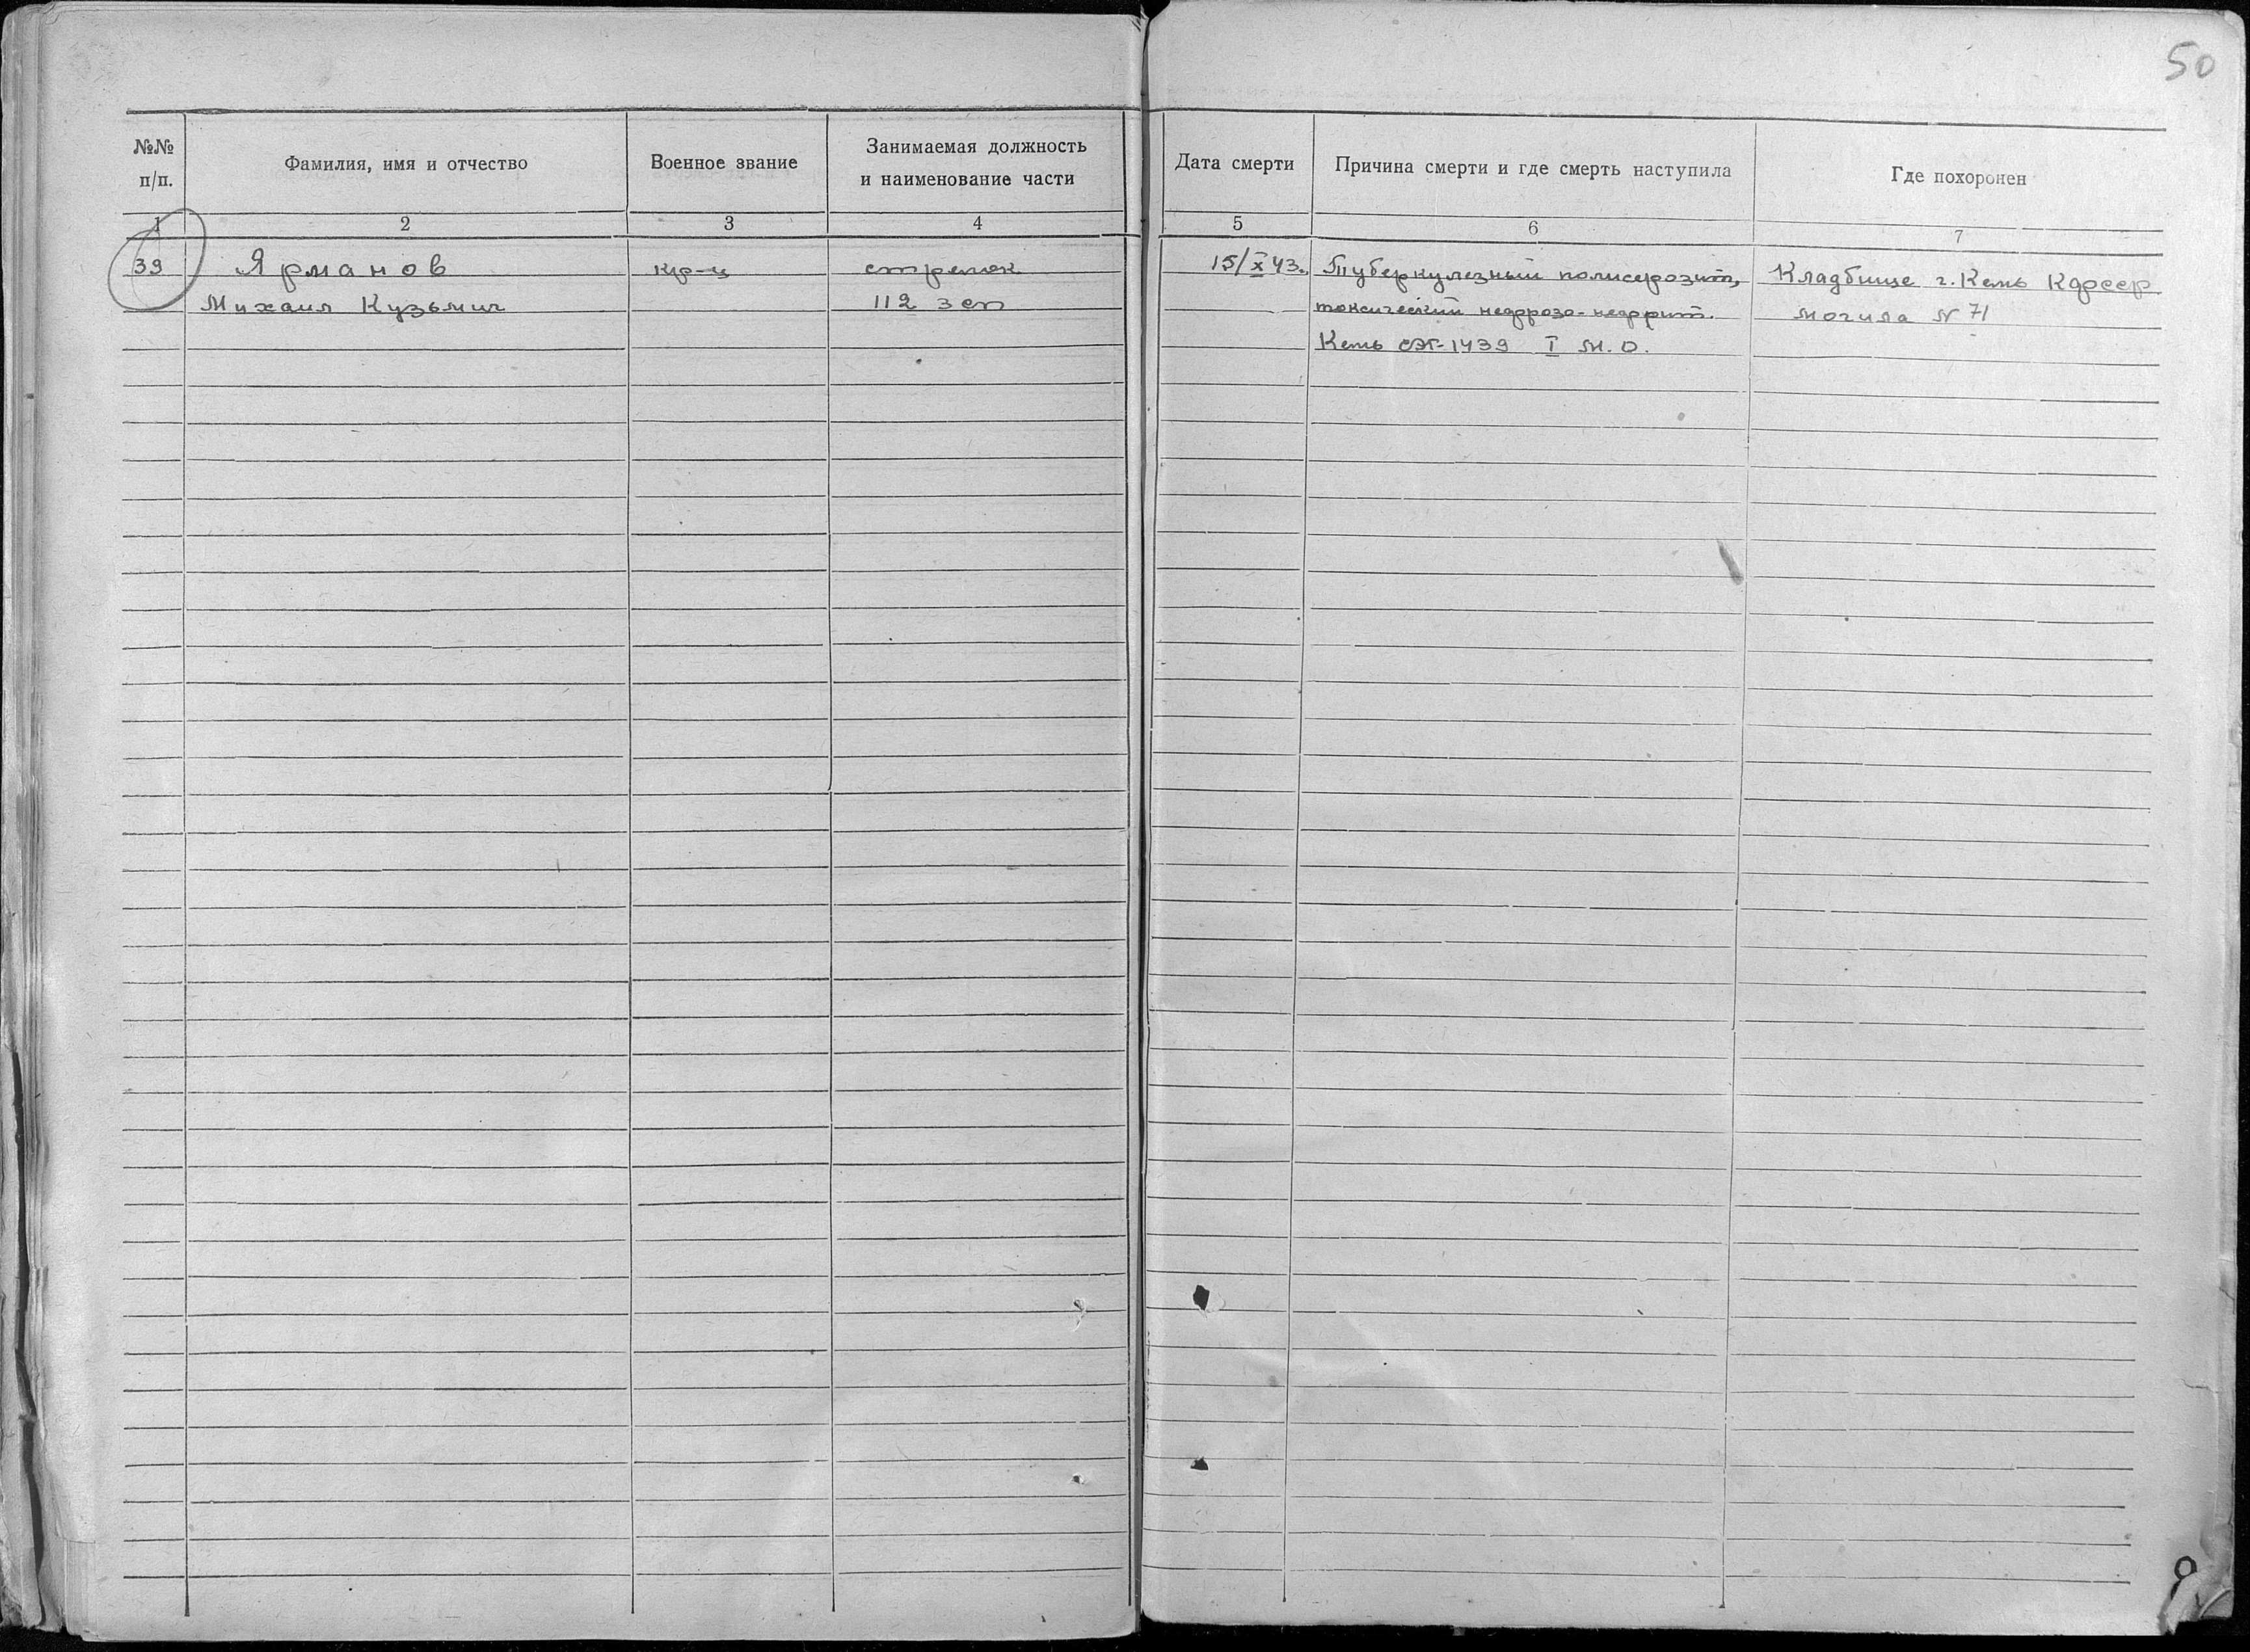 50
№№ п/п.
Фамилия, имя и отчество
Военное звание
Занимаемая должность
и наименование части
Дата смерти
Причина смерти и где смерть наступила
Где похоронен
1 2 3 4 5 6 7
39 Ярманов кр-ц стрелок 15/X 43. Туберкулезный полисерозит, Кладбище г. Кемь Кфсср
Михаил Кузьмич 112 зсп токсический нефрозо-нефрит. могила N 71
Кемь СЭГ-1439 I М.О.